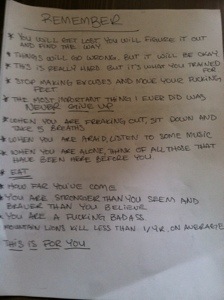 REMEMBER
* YOU WILL GET LOST YOU WILL FIGURE IT OUT
AND FIND THE WAY
* THINGS WILL GO WRONG. BUT IT WILL BE OKAY.
* THIS IS REALLY HARD BUT IT'S WHAT YOU TRAINED
FOR
* STOP MAKING EXCUSES AND MOVE YOUR FUCKING
FEET
* THE MOST IMPORTANT THING I EVER DID WAS
NEVER GIVE UP
* WHEN YOU ARE FREAKING OUT, SIT DOWN AND
TAKE 5 BREATHS
* WHEN YOU ARE AFRAID, LISTEN TO SOME MUSIC
* WHEN YOU ARE ALONE, THINK OF ALL THOSE THAT
HAVE BEEN HERE BEFORE YOU.
* EAT
* HOW FAR YOU'VE COME
* YOU ARE STRONGER THAN YOU SEEM AND
BRAVER THAN YOU BELIEVE
* YOU ARE A FUCKING BADASS
MOUNTAIN LIONS KILL LESS THAN 1/YR. ON AVERAGE
THIS IS FOR YOU